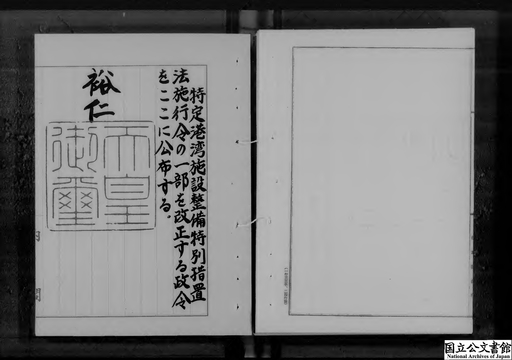 特定港湾施設整備特別措置
法施行令の一部を改正する政令
をここに公布する。
裕仁
天皇
御璽
国立公文書館
National Archives of Japan